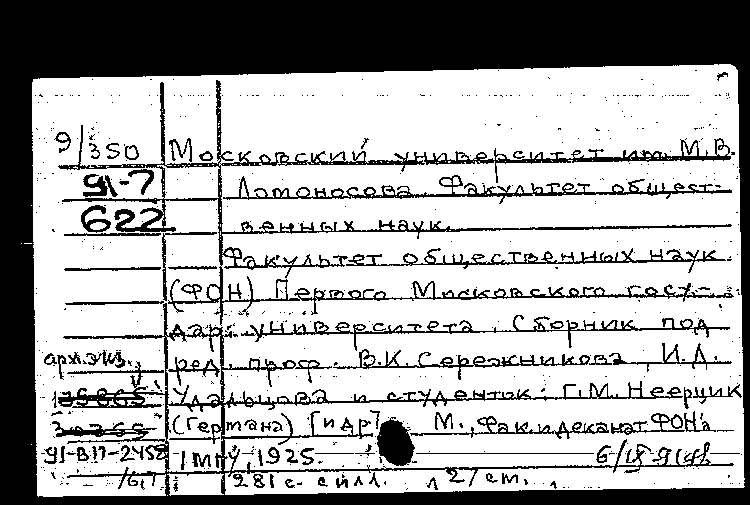 9/350 Московский университет им. М.В.
91-7 Ломоносова. Факультет общест-
622 венных наук.
Факультет общественных наук
(ФОН) Первого Московского госу-
дар. университета. Сборник под
арх.экз., ред. проф. В.К. Сережникова, И.Д.
Удальцова и студенток: Г.М. Неерцик
(Германа) [и др] М., Фак. и деканат ФОН'а
91-В17-2458 1 МГУ, 1925.
281 с. с илл. 27 см.